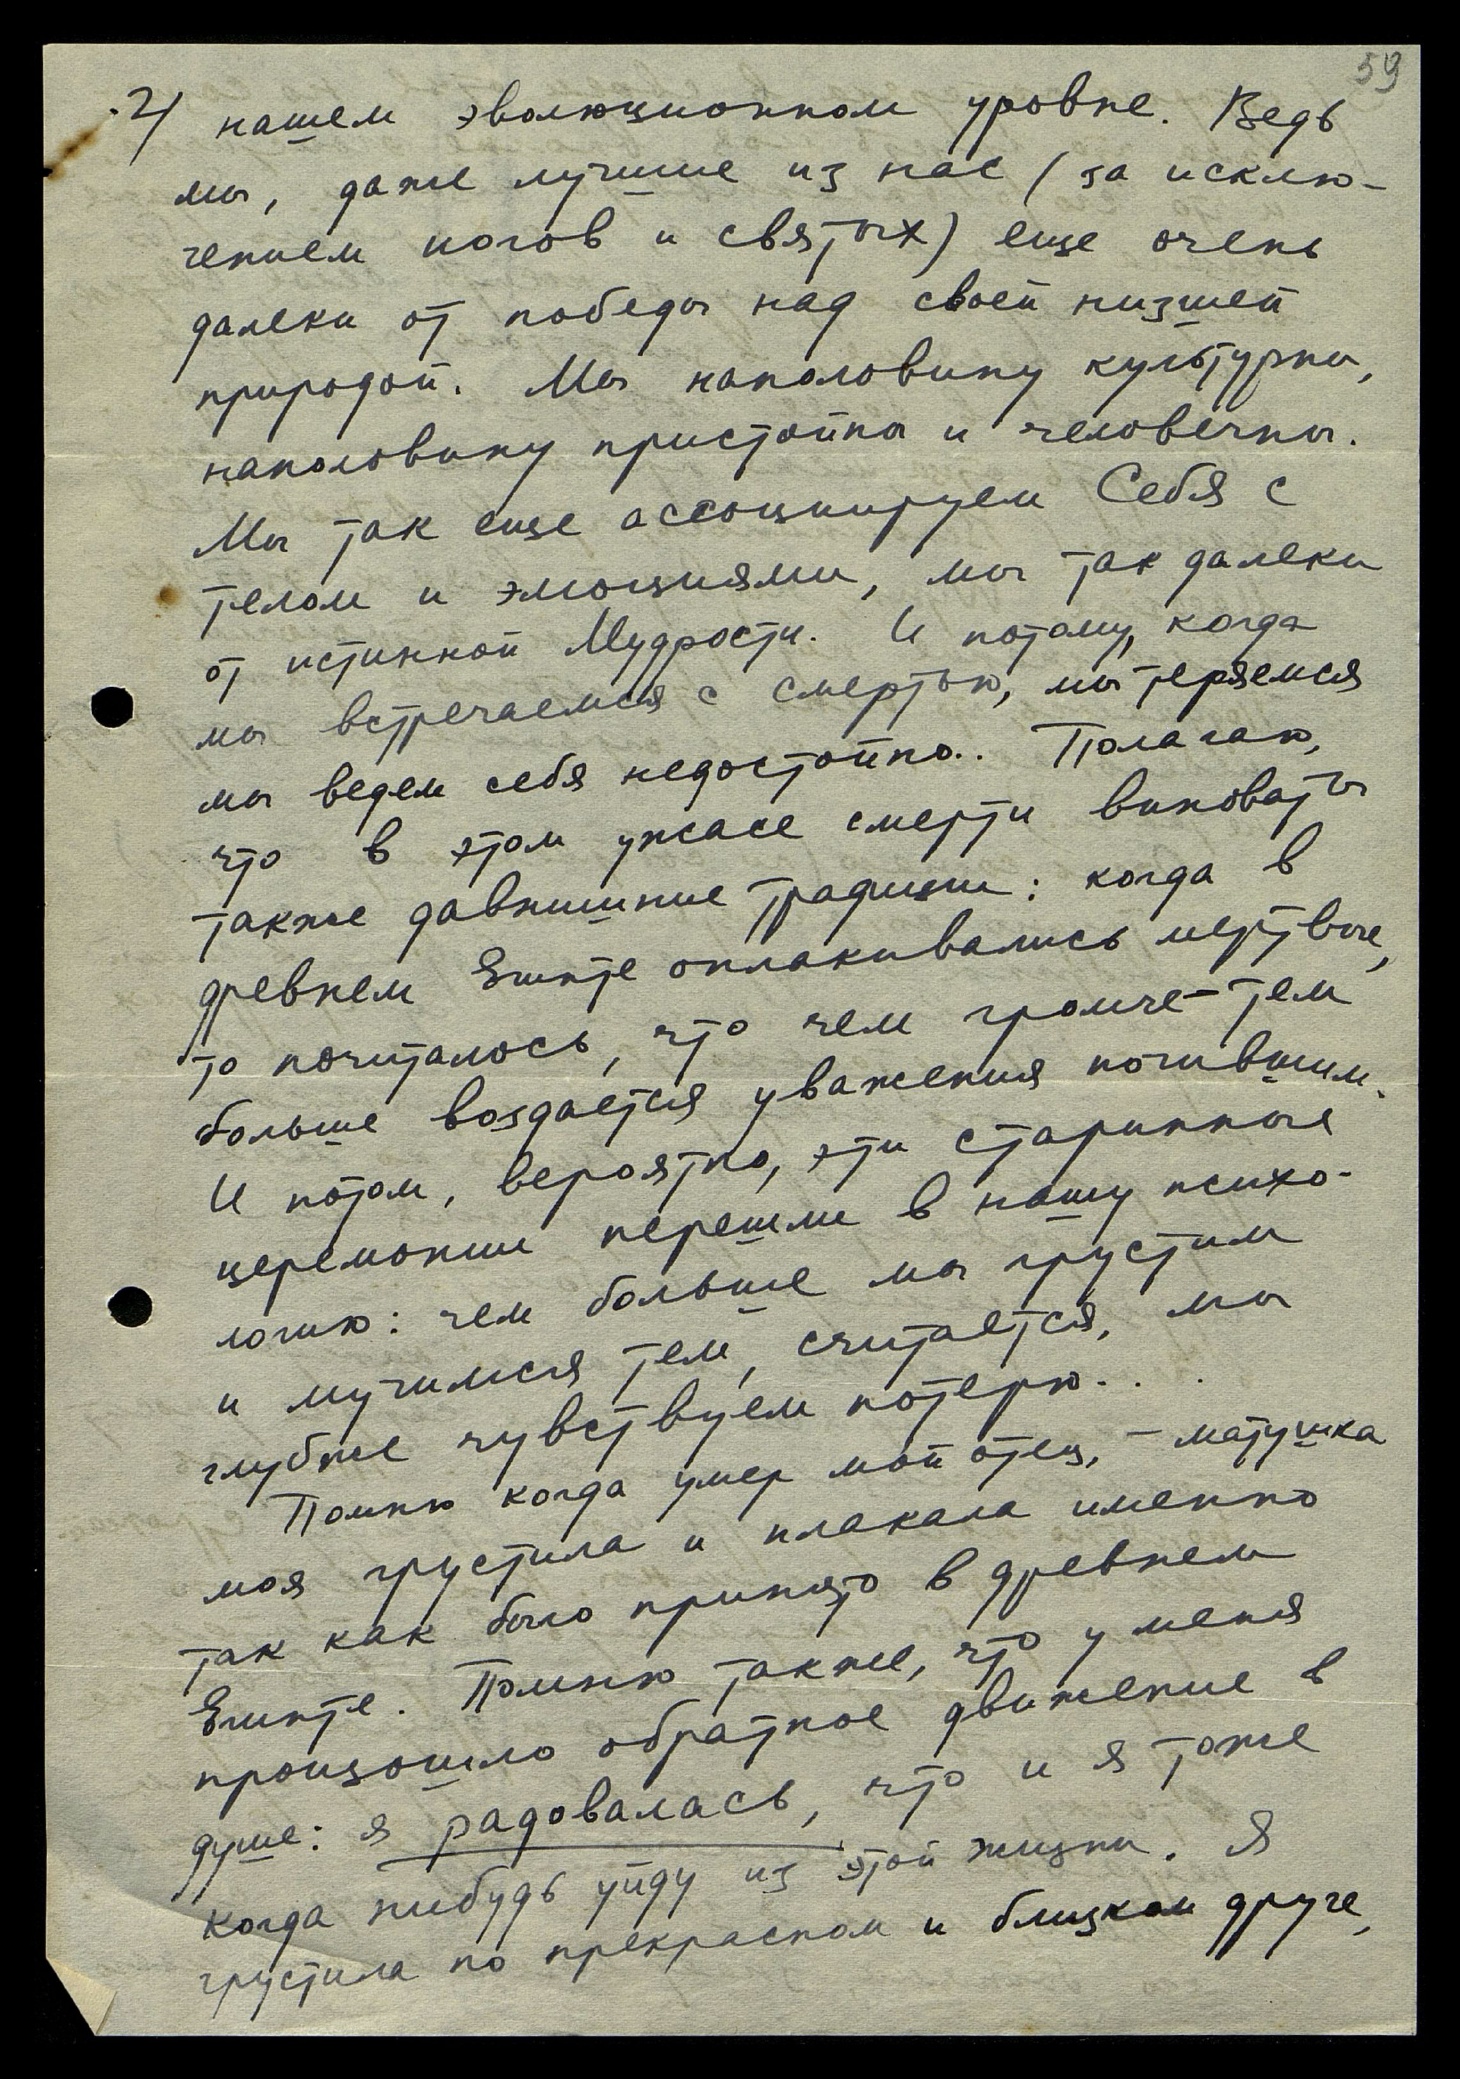 59
2) нашем эволюционном уровне. Ведь
мы, даже лучшие из нас (за исклю-
чением йогов и святых) еще очень
далеки от победы над своей низшей
природой. Мы наполовину культурны,
наполовину пристойны и человечны.
Мы так еще ассоциируем Себя с
телом и эмоциями, мы так далеки
от истинной Мудрости. И потому, когда
мы встречаемся с смертью, мы теряемся
мы ведем себя недостойно.. Полагаю,
что в этом ужасе смерти виноваты
также давнишние традиции: когда в
древнем Египте оплакивались мертвые,
то почиталось, что чем громче – тем
больше воздается уважения почившим.
И потом, вероятно, эти старинные
церемонии перешли в нашу психо-
логию: чем больше мы грустим
и мучимся тем, считается, мы
глубже чувствуем потерю...
Помню когда умер мой отец, – матушка
моя грустила и плакала именно
так как было принято в древнем
Египте. Помню также, что у меня
произошло обратное движение в
душе: я радовалась, что и я тоже
когда нибудь уйду из этой жизни. Я
грустила по прекрасном и близком друге,